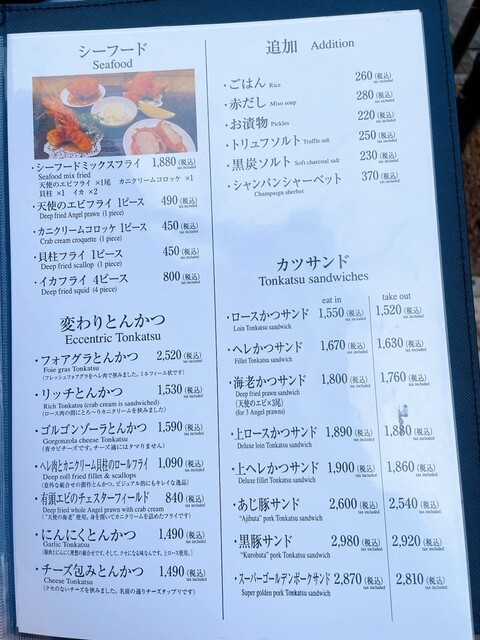 シーフード
Seafood
・シーフードミックスフライ 1,880 (税込) tax included
Seafood mix fried
天使のエビフライ ×1尾 カニクリームコロッケ ×1
貝柱 ×1 イカ ×2
・天使のエビフライ 1ピース 490 (税込) tax included
Deep fried Angel prawn (1 piece)
・カニクリームコロッケ 1ピース 450 (税込) tax included
Crab cream croquette (1 piece)
・貝柱フライ 1ピース 450 (税込) tax included
Deep fried scallop (1 piece)
・イカフライ 4ピース 800 (税込) tax included
Deep fried squid (4 piece)
変わりとんかつ
Eccentric Tonkatsu
・フォアグラとんかつ 2,520 (税込) tax included
Foie gras Tonkatsu
(フレッシュフォアグラをヘレ肉で挟みました。ミルフィーユ状です)
・リッチとんかつ 1,530 (税込) tax included
Rich Tonkatsu (crab cream is sandwiched)
(ロース肉の間にとろ〜りカニクリームを挟みました)
・ゴルゴンゾーラとんかつ 1,590 (税込) tax included
Gorgonzola cheese Tonkatsu
(青カビチーズです。チーズ通にはタマリません)
・ヘレ肉とカニクリーム貝柱のロールフライ 1,090 (税込) tax included
Deep roll fried fillet & scallops
(意外な組合せの創作とんかつ、ビジュアル的にもキレイな逸品)
・有頭エビのチェスターフィールド 840 (税込) tax included
Deep fried whole Angel prawn with crab cream
("天使の海老"使用。身を開いてカニクリームを詰めたフライです)
・にんにくとんかつ 1,490 (税込) tax included
Garlic Tonkatsu
・チーズ包みとんかつ 1,490 (税込) tax included
Cheese Tonkatsu
(クセのないチーズを挟みました。名前の通りチーズタップリです)
追加 Addition
・ごはん Rice 260 (税込) tax included
・赤だし Miso soup 280 (税込) tax included
・お漬物 Pickles 220 (税込) tax included
・トリュフソルト Truffle salt 250 (税込) tax included
・黒炭ソルト Soft charcoal salt 230 (税込) tax included
・シャンパンシャーベット 370 (税込) tax included
Champaign sherbet
カツサンド
Tonkatsu sandwiches
eat in take out
・ロースかつサンド 1,550 (税込) tax included 1,520 (税込) tax included
Loin Tonkatsu sandwich
・ヘレかつサンド 1,670 (税込) tax included 1,630 (税込) tax included
Fillet Tonkatsu sandwich
・海老かつサンド 1,800 (税込) tax included 1,760 (税込) tax included
Deep fried prawn sandwich
(天使のエビ×3尾)
(for 3 Angel prawns)
・上ロースかつサンド 1,890 (税込) tax included 1,880 (税込) tax included
Deluxe loin Tonkatsu sandwich
・上ヘレかつサンド 1,900 (税込) tax included 1,860 (税込) tax included
Deluxe fillet Tonkatsu sandwich
・あじ豚サンド 2,600 (税込) tax included 2,540 (税込) tax included
"Ajibuta" pork Tonkatsu sandwich
・黒豚サンド 2,980 (税込) tax included 2,920 (税込) tax included
"Kurobuta" pork Tonkatsu sandwich
・スーパーゴールデンポークサンド 2,870 (税込) tax included 2,810 (税込) tax included
Super golden pork Tonkatsu sandwich